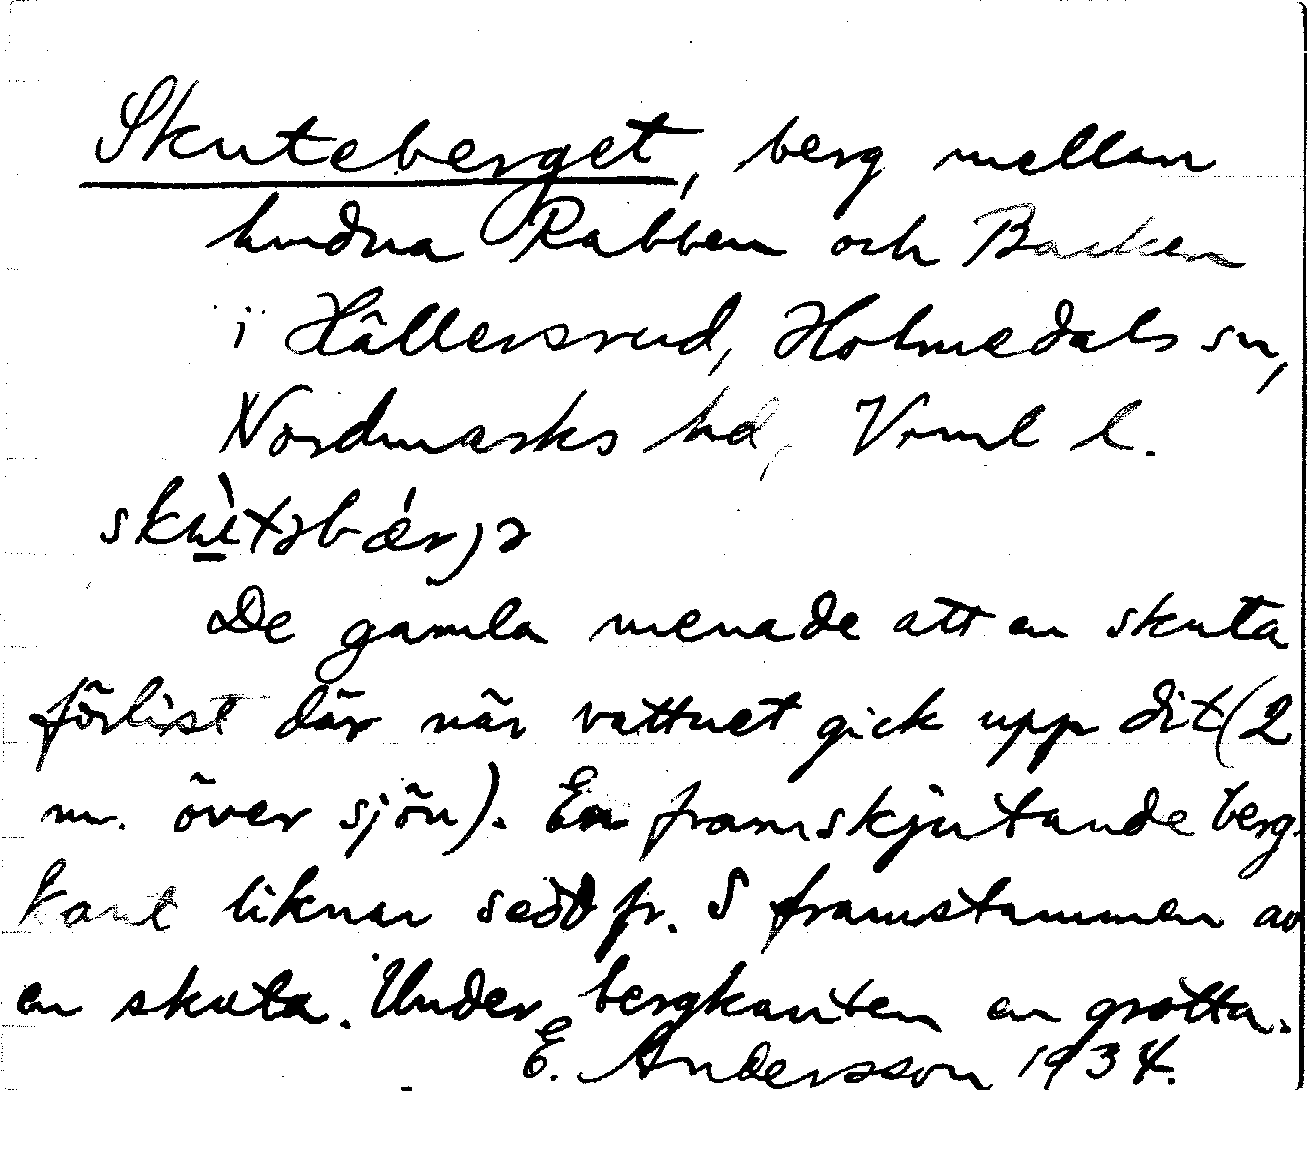 Skuteberget, berg mellan
hmdna Rabben och Backen
i Hällersrud, Holmedals sn,
Nordmarks hd, Vrml l.
De gamla menade att en skuta
förlist där när vattnet gick upp dit (2
m. över sjön). En framskjutande berg-
kant liknar sedd fr. S framstammen av
en skuta. Under bergkanten en grotta.
E. Andersson 1934.